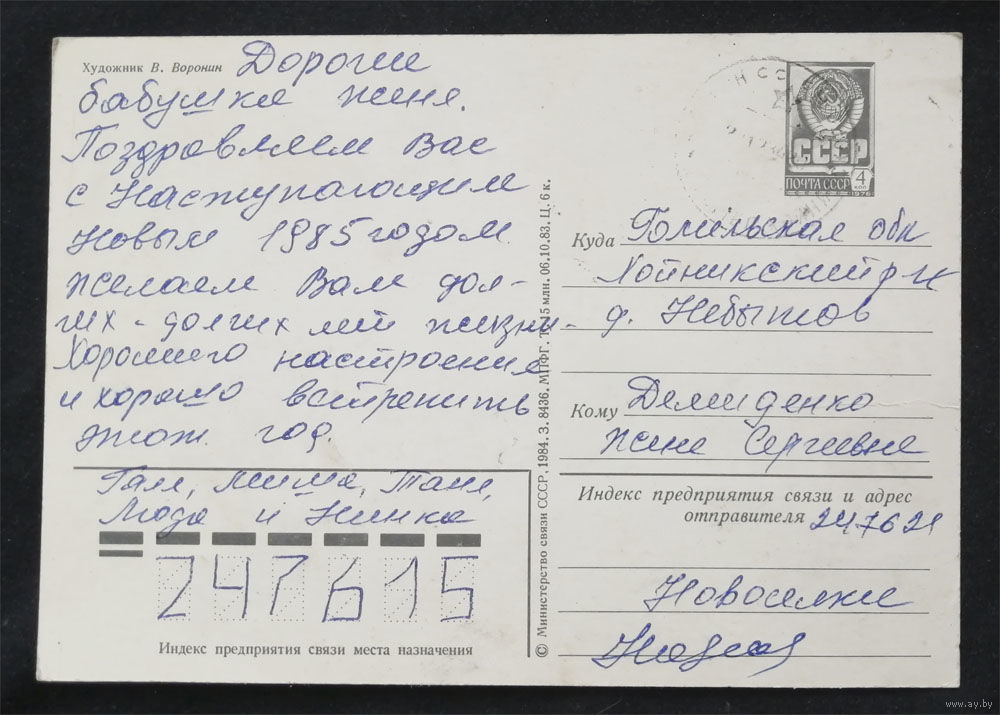 Художник В. Воронин
Дорогие
бабушка Женя.
Поздравляем Вас
с Наступающим
Новым 1985 годом.
Желаем Вам дол-
гих-долгих лет жизни
Хорошего настроения
и хорошо встретить
этот год.
Галя, Миша, Таня,
Люда и Нинка
247615
Индекс предприятия связи места назначения
© Министерство связи СССР, 1984. З. 8436. МПФГ. Т. 15 млн. 06.10.83. Ц. 6 к.
СССР
ПОЧТА СССР
4 КОП
1976
Куда Гомельская обл
Хойникский р-н
д. Небытов
Кому Демиденко
Жене Сергеевне
Индекс предприятия связи и адрес
отправителя 247621
Новоселки
www.ay.by